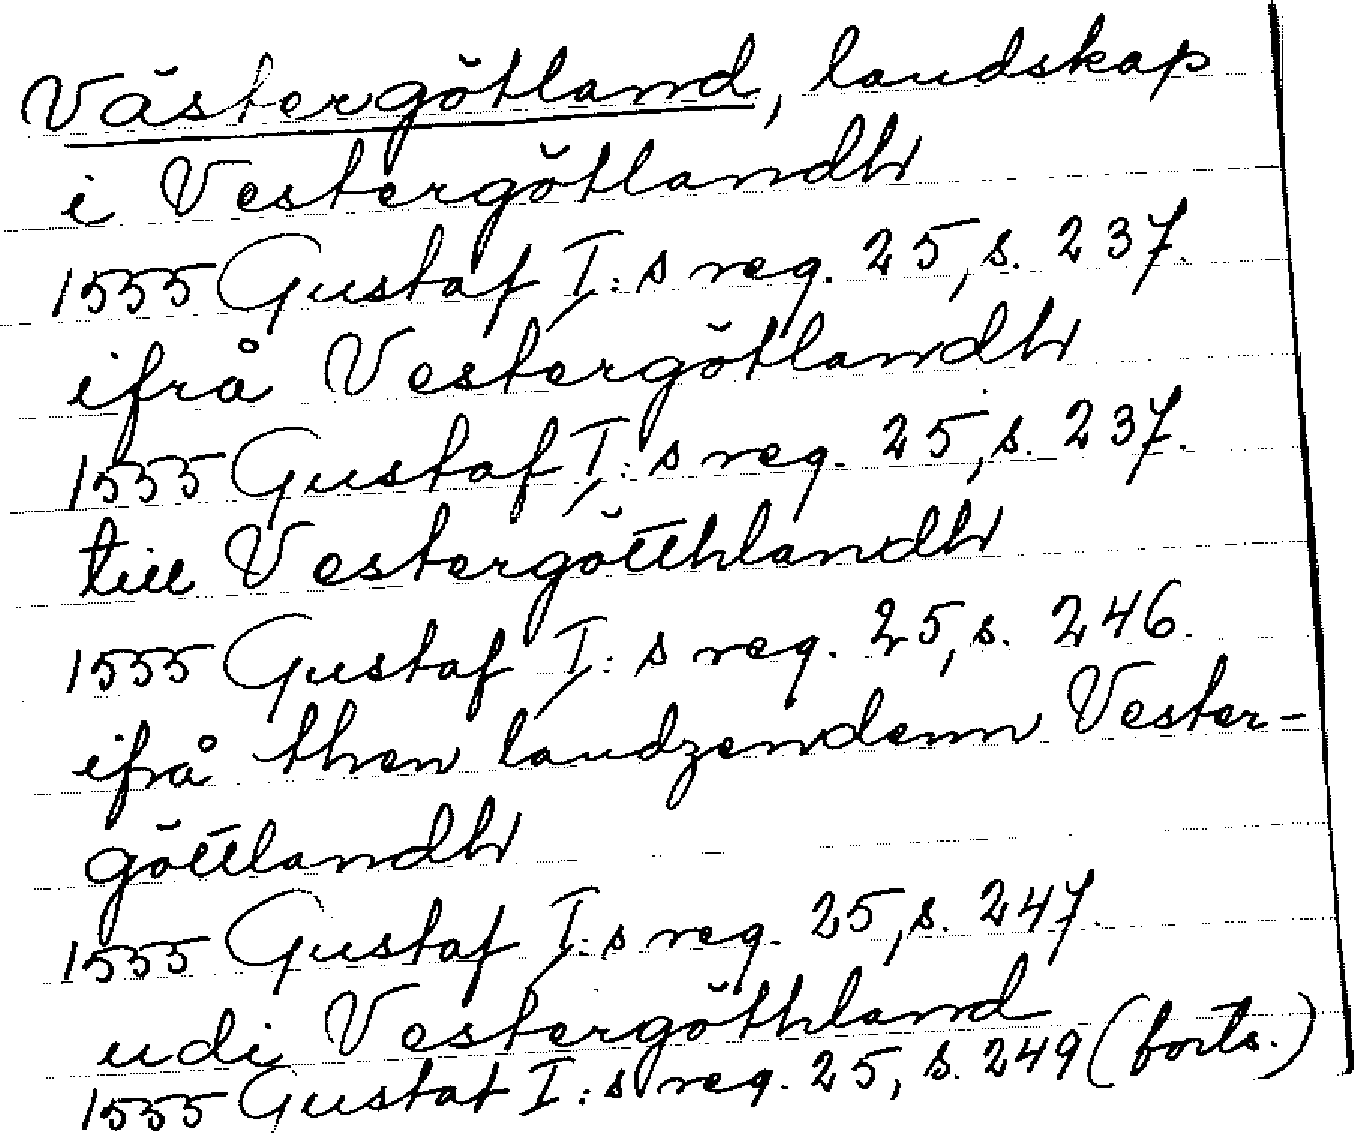 Västergötland, landskap
i Vestergötlandh
1555 Gustaf I:s reg. 25, s. 237.
ifrå Vestergötlandh
1555 Gustaf I:s reg. 25, s. 237.
till Vestergötthlandh
1555 Gustaf I:s reg. 25, s. 246.
ifrå then landzendenn Vester=
göttlandh
1555 Gustaf I:s reg. 25, s. 247.
udi Vestergöthland
1555 Gustaf I:s reg. 25, s. 249 (forts.)